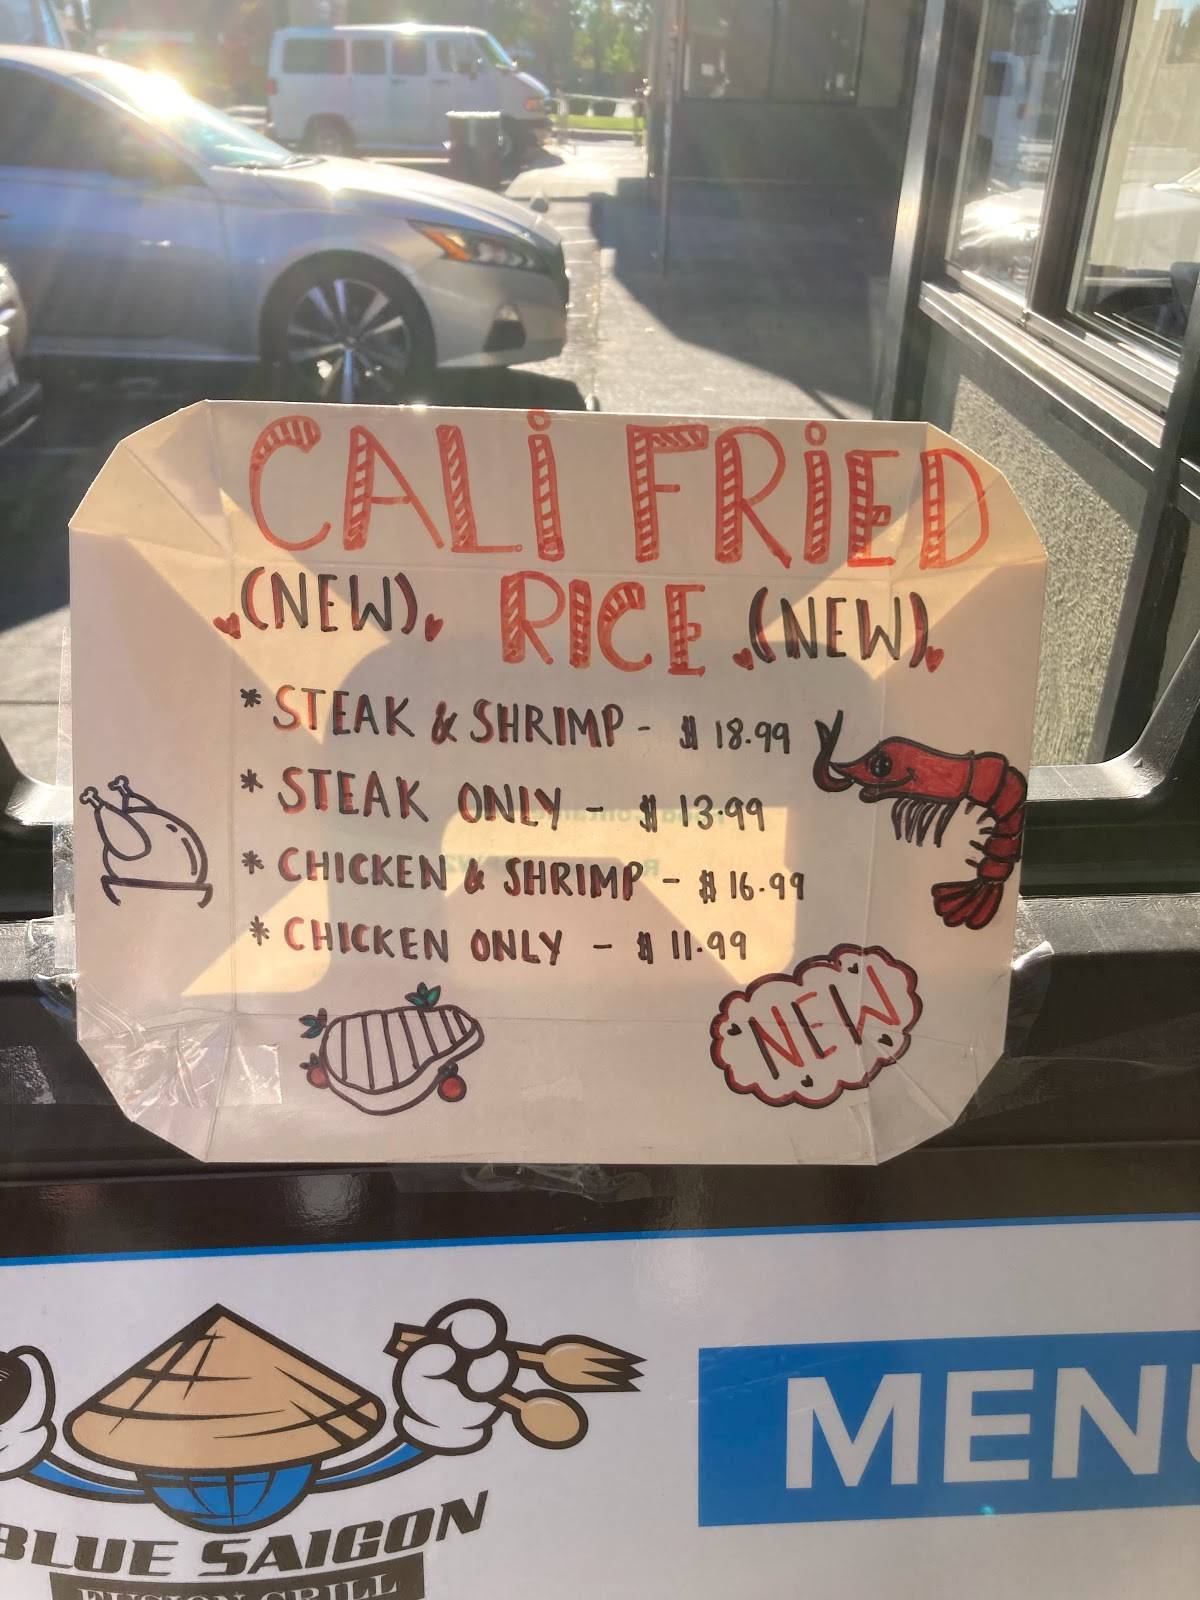 CALI FRIED
(NEW) RICE (NEW)
* STEAK & SHRIMP - $ 18.99
* STEAK ONLY - $ 13.99
* CHICKEN & SHRIMP - $ 16.99
* CHICKEN ONLY - $ 11.99
NEW
MENU
BLUE SAIGON
FUSION GRILL